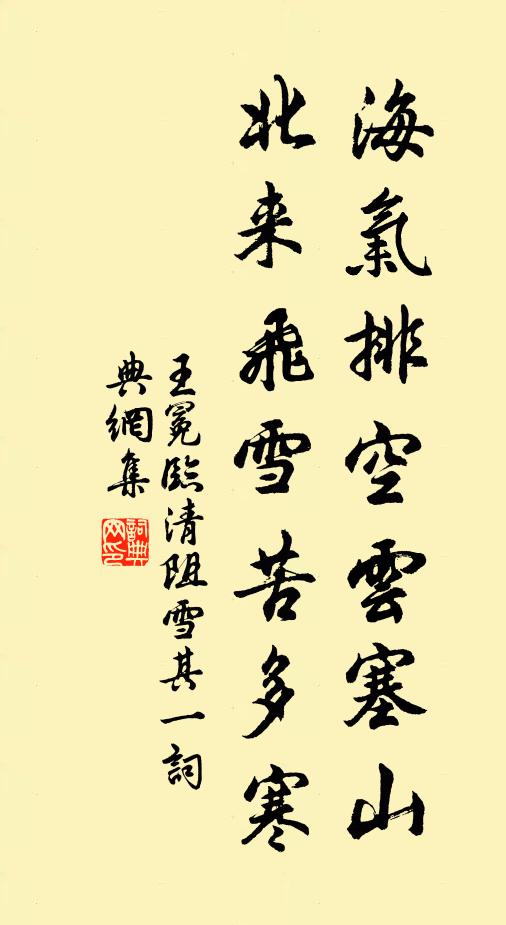 海氣排空雲塞山
北来飛雪苦多寒
王冕臨清阻雪其一詞
典網集
詞典
网印